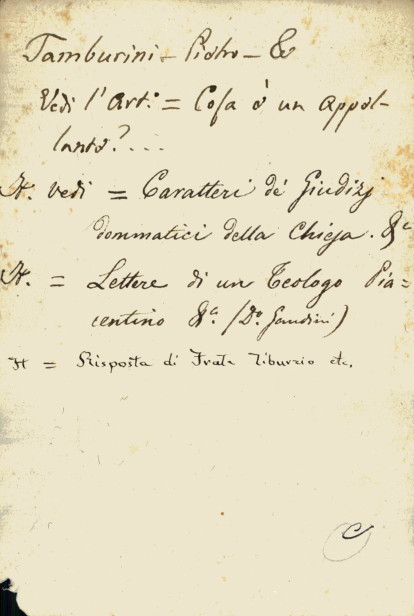 Tamburini - Pietro - &
Vedi l'Art.º = Cosa è un appel-
lante?...
It. vedi = Caratteri de' Giudizj
dommatici della Chiesa. &ª
It. = Lettere di un Teologo Pia=
centino &ª. (Dº. Gaudini)
It = Risposta di Frate Tiburzio etc.
C